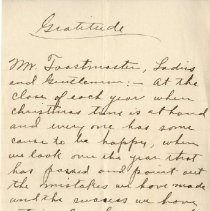 Gratitude
Mr. Toastmaster, Ladies
and Gentlemen:- At the
close of each year when
Christmas time is at hand
and every one has some
cause to be happy, when
we look over the year that
has passed and point out
the mistakes we have made
and the success we have